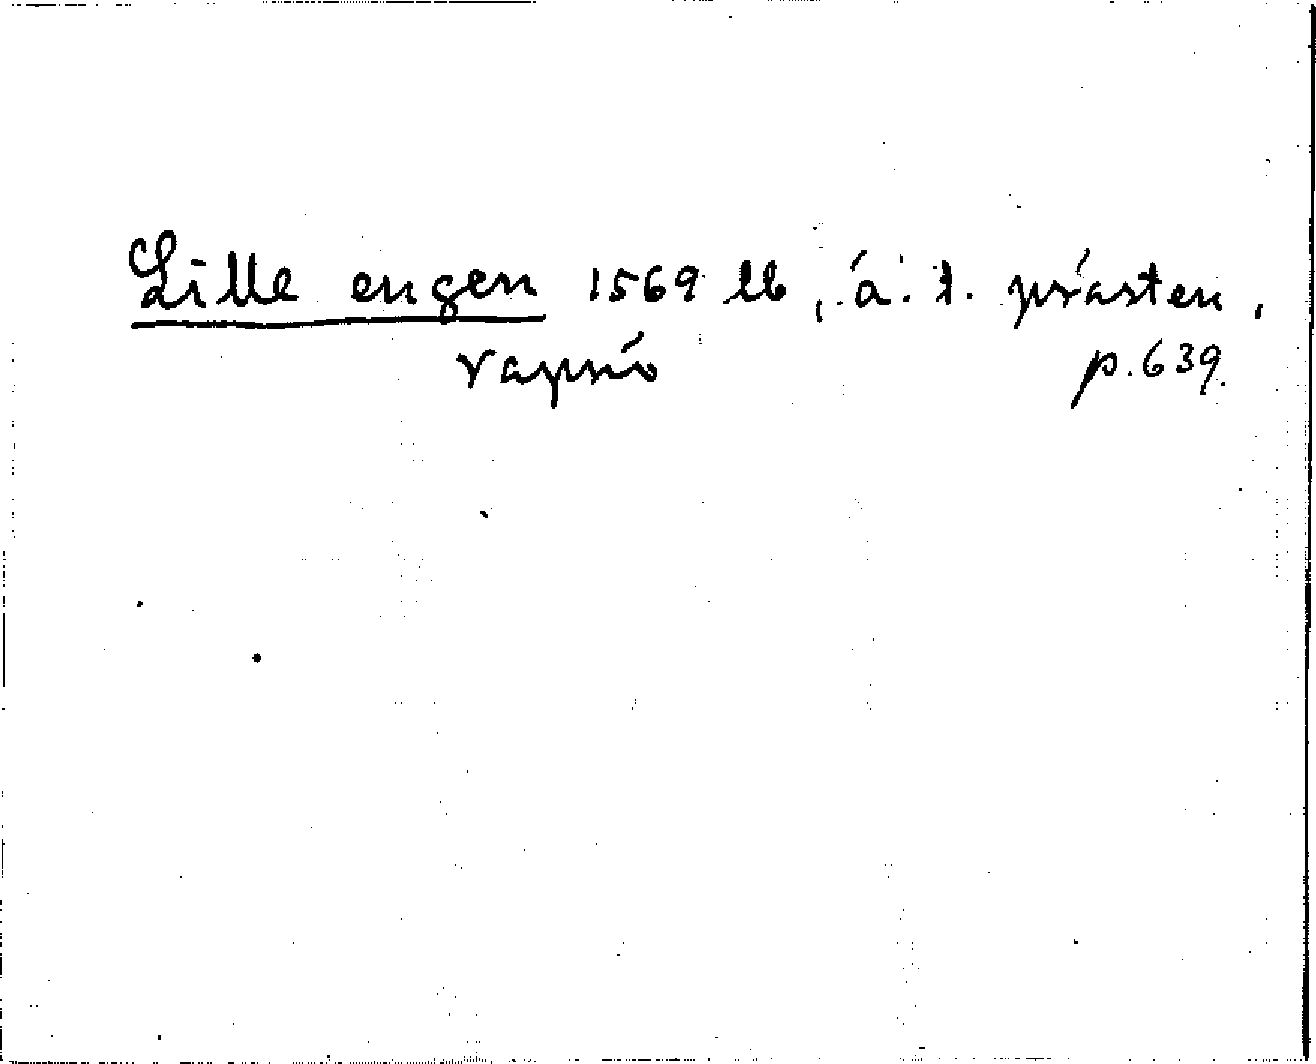 Lille engen 1569 lb, ä. t. prästen,
Vapnö p. 639.